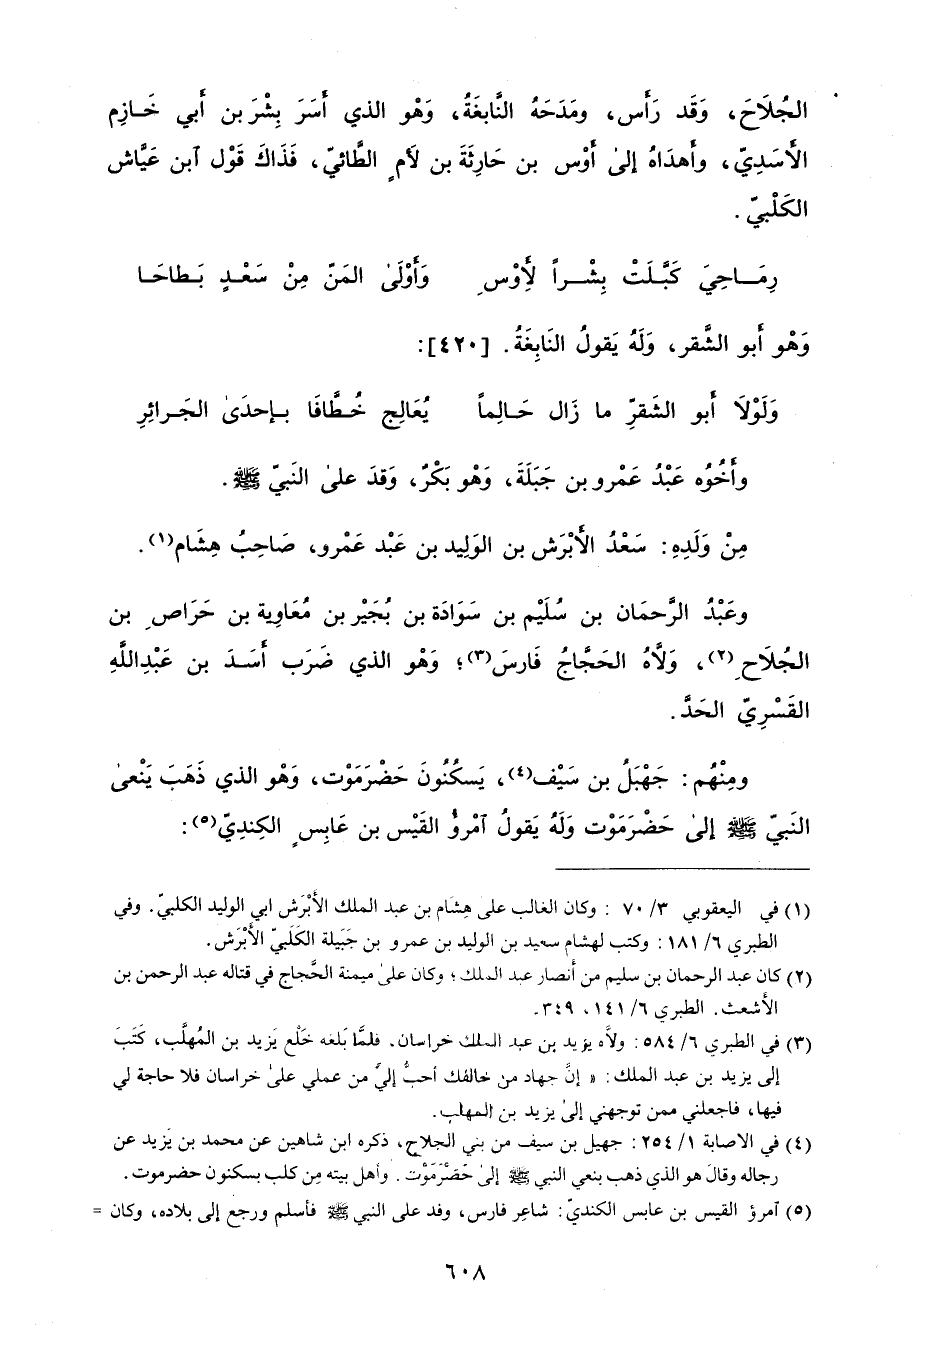 الجُلَاحَ، وَقَد رَأَس، ومَدَحَهُ النَّابغَةُ، وَهُو الذي أَسَرَ بِشْرَ بن أَبي خَازِم
الأَسَدِيّ، وأَهدَاهُ إلىٰ أَوْس بن حَارِثَةَ بن لأم ٍ الطَّائيّ، فَذَاكَ قَوْل آبن عَيَّاش
الكَلْبيّ.
رِمَاحِيَ كَبَّلَتْ بِشْراً لأَِوْسِ وَأَوْلَىٰ المَنّ مِنْ سَعْدٍ بَطاحَا
وَهْو أَبو الشَّقر، وَلَهُ يَقولُ النَابِغَةُ. [٤٢٠]:
وَلَوْلَا أَبو الشَقرِّ ما زَال حَالِماً يُعَالِج خُطَّافَا بإحدَىٰ الجَرائِرِ
وأَخُوُه عَبْدُ عَمْرو بن جَبَلَةَ، وَهْو بَكْرٌ، وَقدَ علىٰ النَبيّ ﷺ.
مِنْ وَلَدِهِ: سَعْدُ الأَبْرَش بن الوَلِيد بن عَبْد عَمْرو، صَاحِبُ هِشَام(١).
وعَبْدُ الرَّحمَان بن سُلَيْم بن سَوَادَة بن بُجَيْر بن مُعَاوِية بن حَرَاصِ بن
الجُلَاحِ(٢)، وَلَّاهُ الحَجَّاجُ فَارسَ(٣)؛ وَهْو الذي ضَرَب أَسَدَ بن عَبْدِاللَّهِ
القَسْرِيّ الحَدَّ.
ومِنْهُم: جَهْبَلُ بن سَيْف(٤)، يَسكُنُونَ حَضْرَمَوْت، وَهْو الذي ذَهَبَ يَنْعىٰ
النَبيّ ﷺ إلىٰ حَضْرَمَوْت وَلَهُ يَقولُ آمْروُ القَيْس بن عَابِسٍ الكِنديّ(٥):
(١) في اليعقوبي ٣/ ٧٠ : وكان الغالب على هِشام بن عبد الملك الأَبْرَش ابي الوليد الكلبيّ. وفي
الطبري ٦/ ١٨١ : وكتب لهشام سعيد بن الوليد بن عمرو بن جَبِيلة الكَلَبيّ الأَبْرَش.
(٢) كان عبد الرحمان بن سليم من أنصار عبد الملك؛ وكان علىٰ ميمنة الحَّجاج في قتاله عبد الرحمن بن
الأشعث. الطبري ٦/ ١٤١، ٣٤٩.
(٣) في الطبري ٦/ ٥٨٤: ولاَّه يزيد بن عبد الملك خراسان. فلمَّا بَلغه خَلْع يَزيد بن المُهلَّب، كَتَبَ
إلى يزيد بن عبد الملك: « إنَّ جهاد من خالفك أحبُّ إليَّ من عملي علىٰ خراسان فلا حاجة لي
فيها، فاجعلني ممن توجهني إلىٰ يزيد بن المهلب.
(٤) في الاصابة ١/ ٢٥٤ : جهبل بن سيف من بني الجلاح، ذكره ابن شاهين عن محمد بن يَزيد عن
رجاله وقالَ هو الذي ذهب بنعي النبي ﷺ إلىٰ حَضْرَمَوْت. وأهل بيته مِن كلب يسكنون حضرموت.
(٥) آمرؤ القيس بن عابس الكنديّ: شاعِر فارس، وفد على النبي ﷺ فأسلم ورجع إلى بلاده، وكان =
٦٠٨